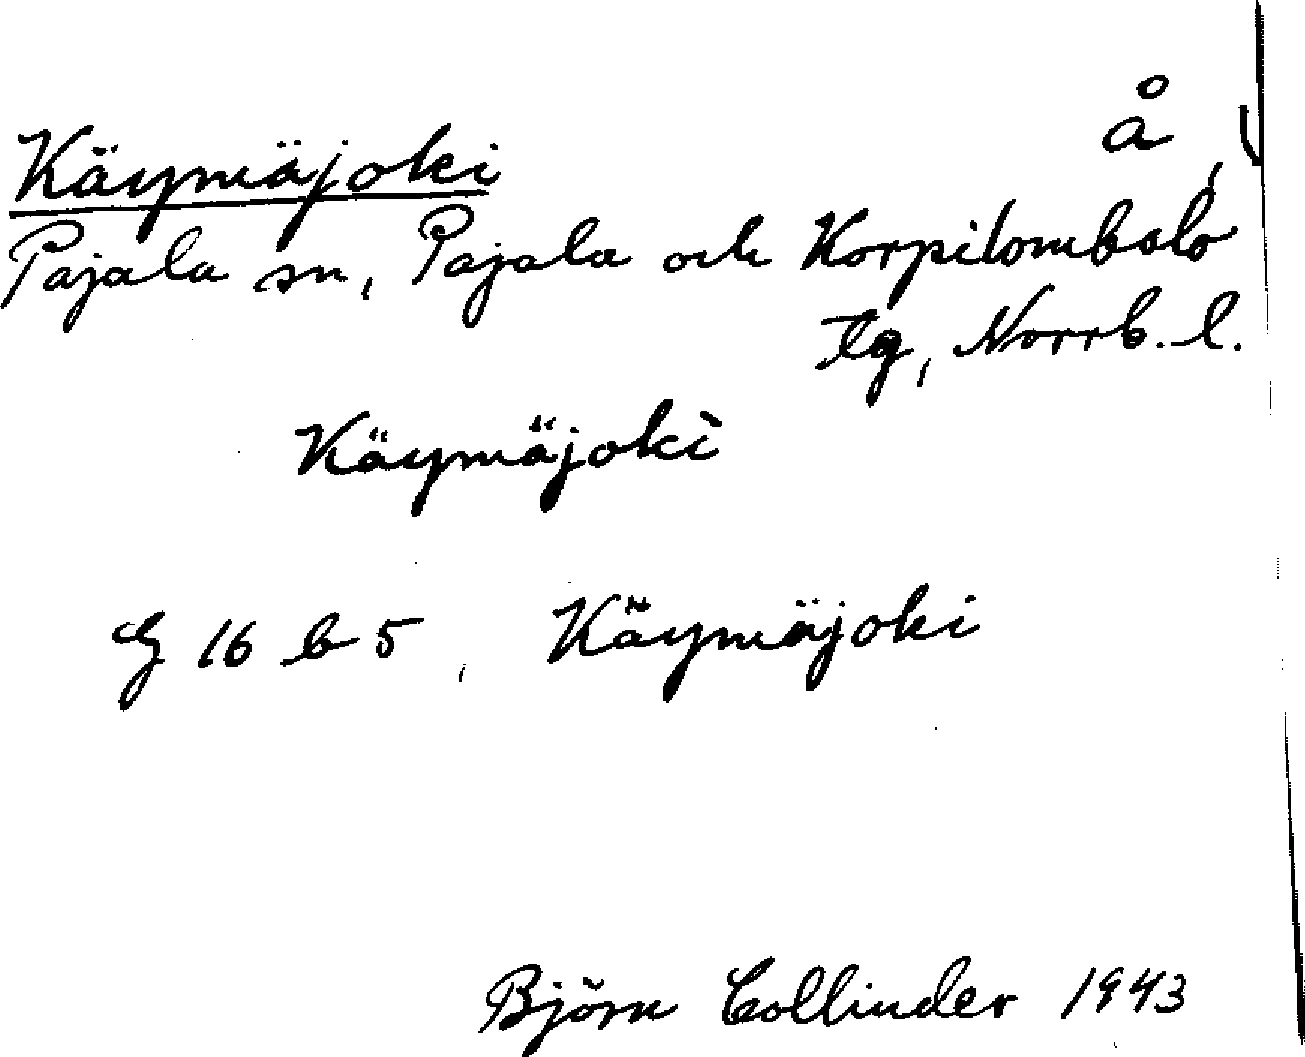 å
Käymäjoki
Pajala sn, Pajala och Korpilombolo
tg, Norrb. l.
Käymäjoki
G 16 b 5, Käymäjoki
Björn Collinder 1943